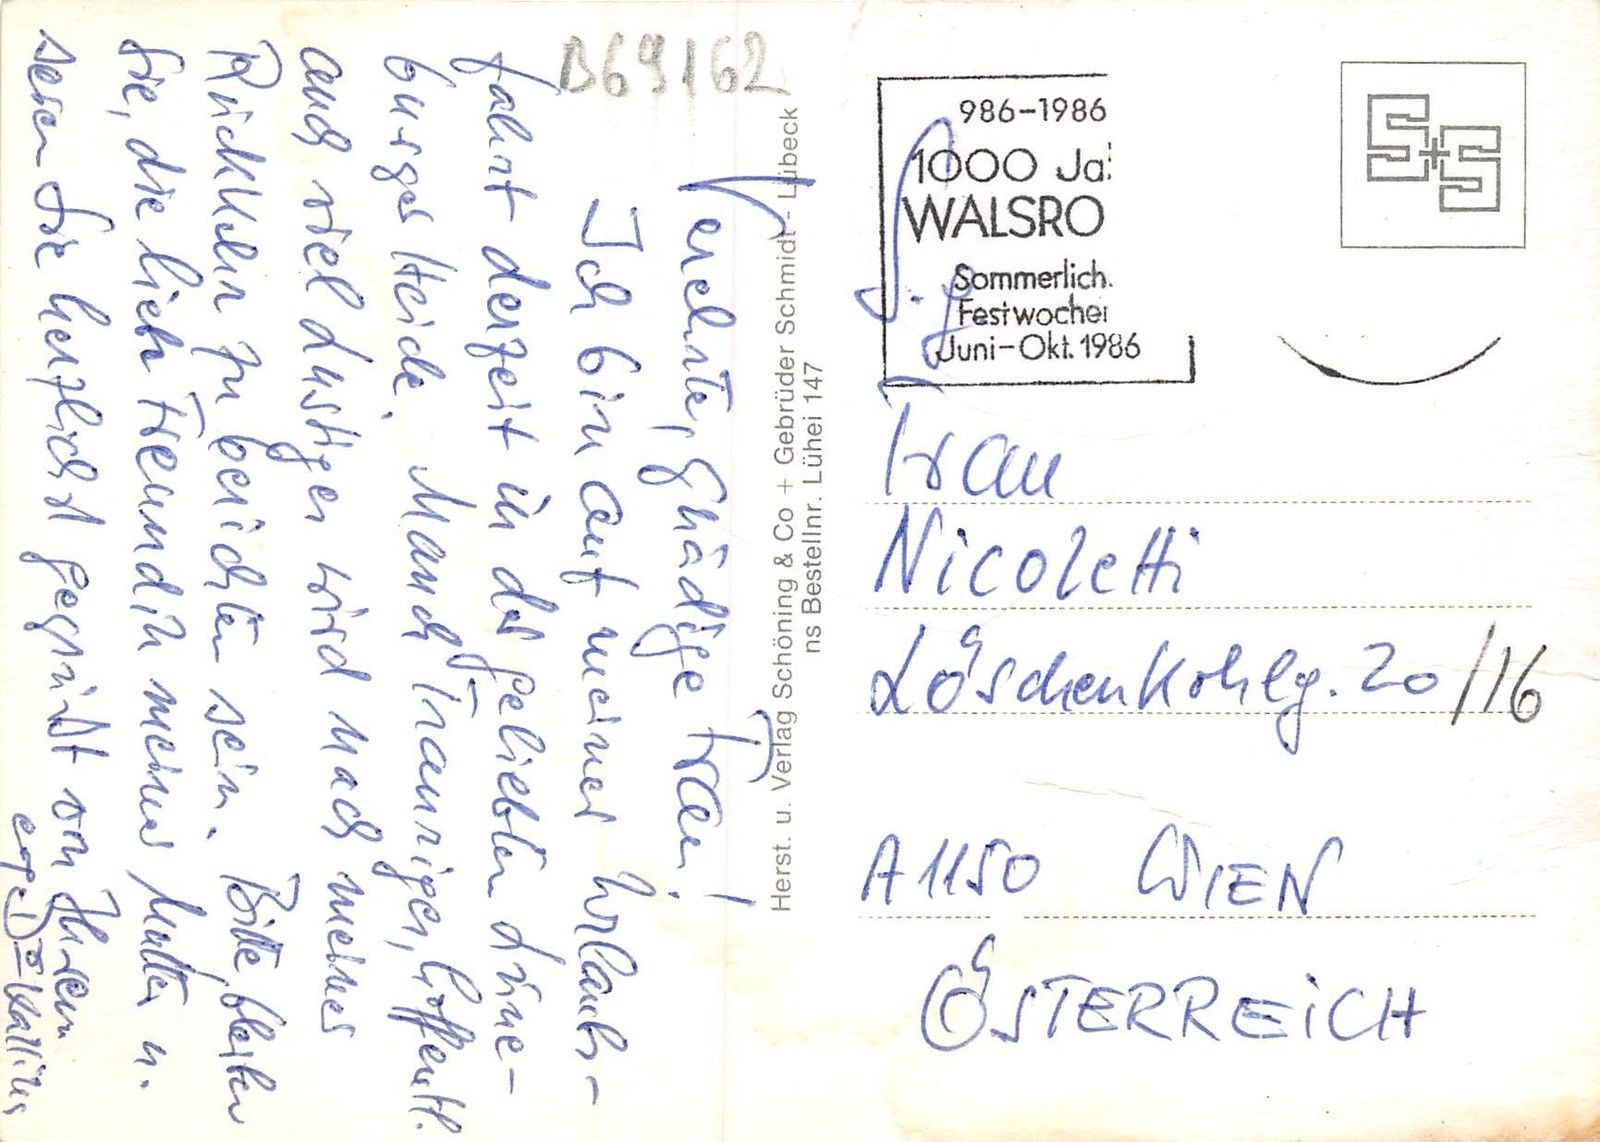 B69162
Verehrte, gnädige Frau!
Ich bin auf meiner Urlaubs-
fahrt derzeit in der geliebten Lüne-
burger Heide. Manch Trauriger, hoffentl.
auch viel Lustiger wird nach meiner
Rückkehr zu berichten sein. Bitte, bleiben
Sie, die liebe Freundin meiner Mutter u.
seien Sie herzlichst gegrüßt von Ihrem
erg.
Herst. u. Verlag Schöning & Co + Gebrüder Schmidt - Lübeck
ns Bestellnr. Lühei 147
986-1986
1000 Ja
WALSRO
Sommerlich.
Festwochen
Juni-Okt. 1986
S+S
S. g.
Frau
Nicoletti
Löschenkohlg. 20/16
A 1150 WIEN
ÖSTERREICH